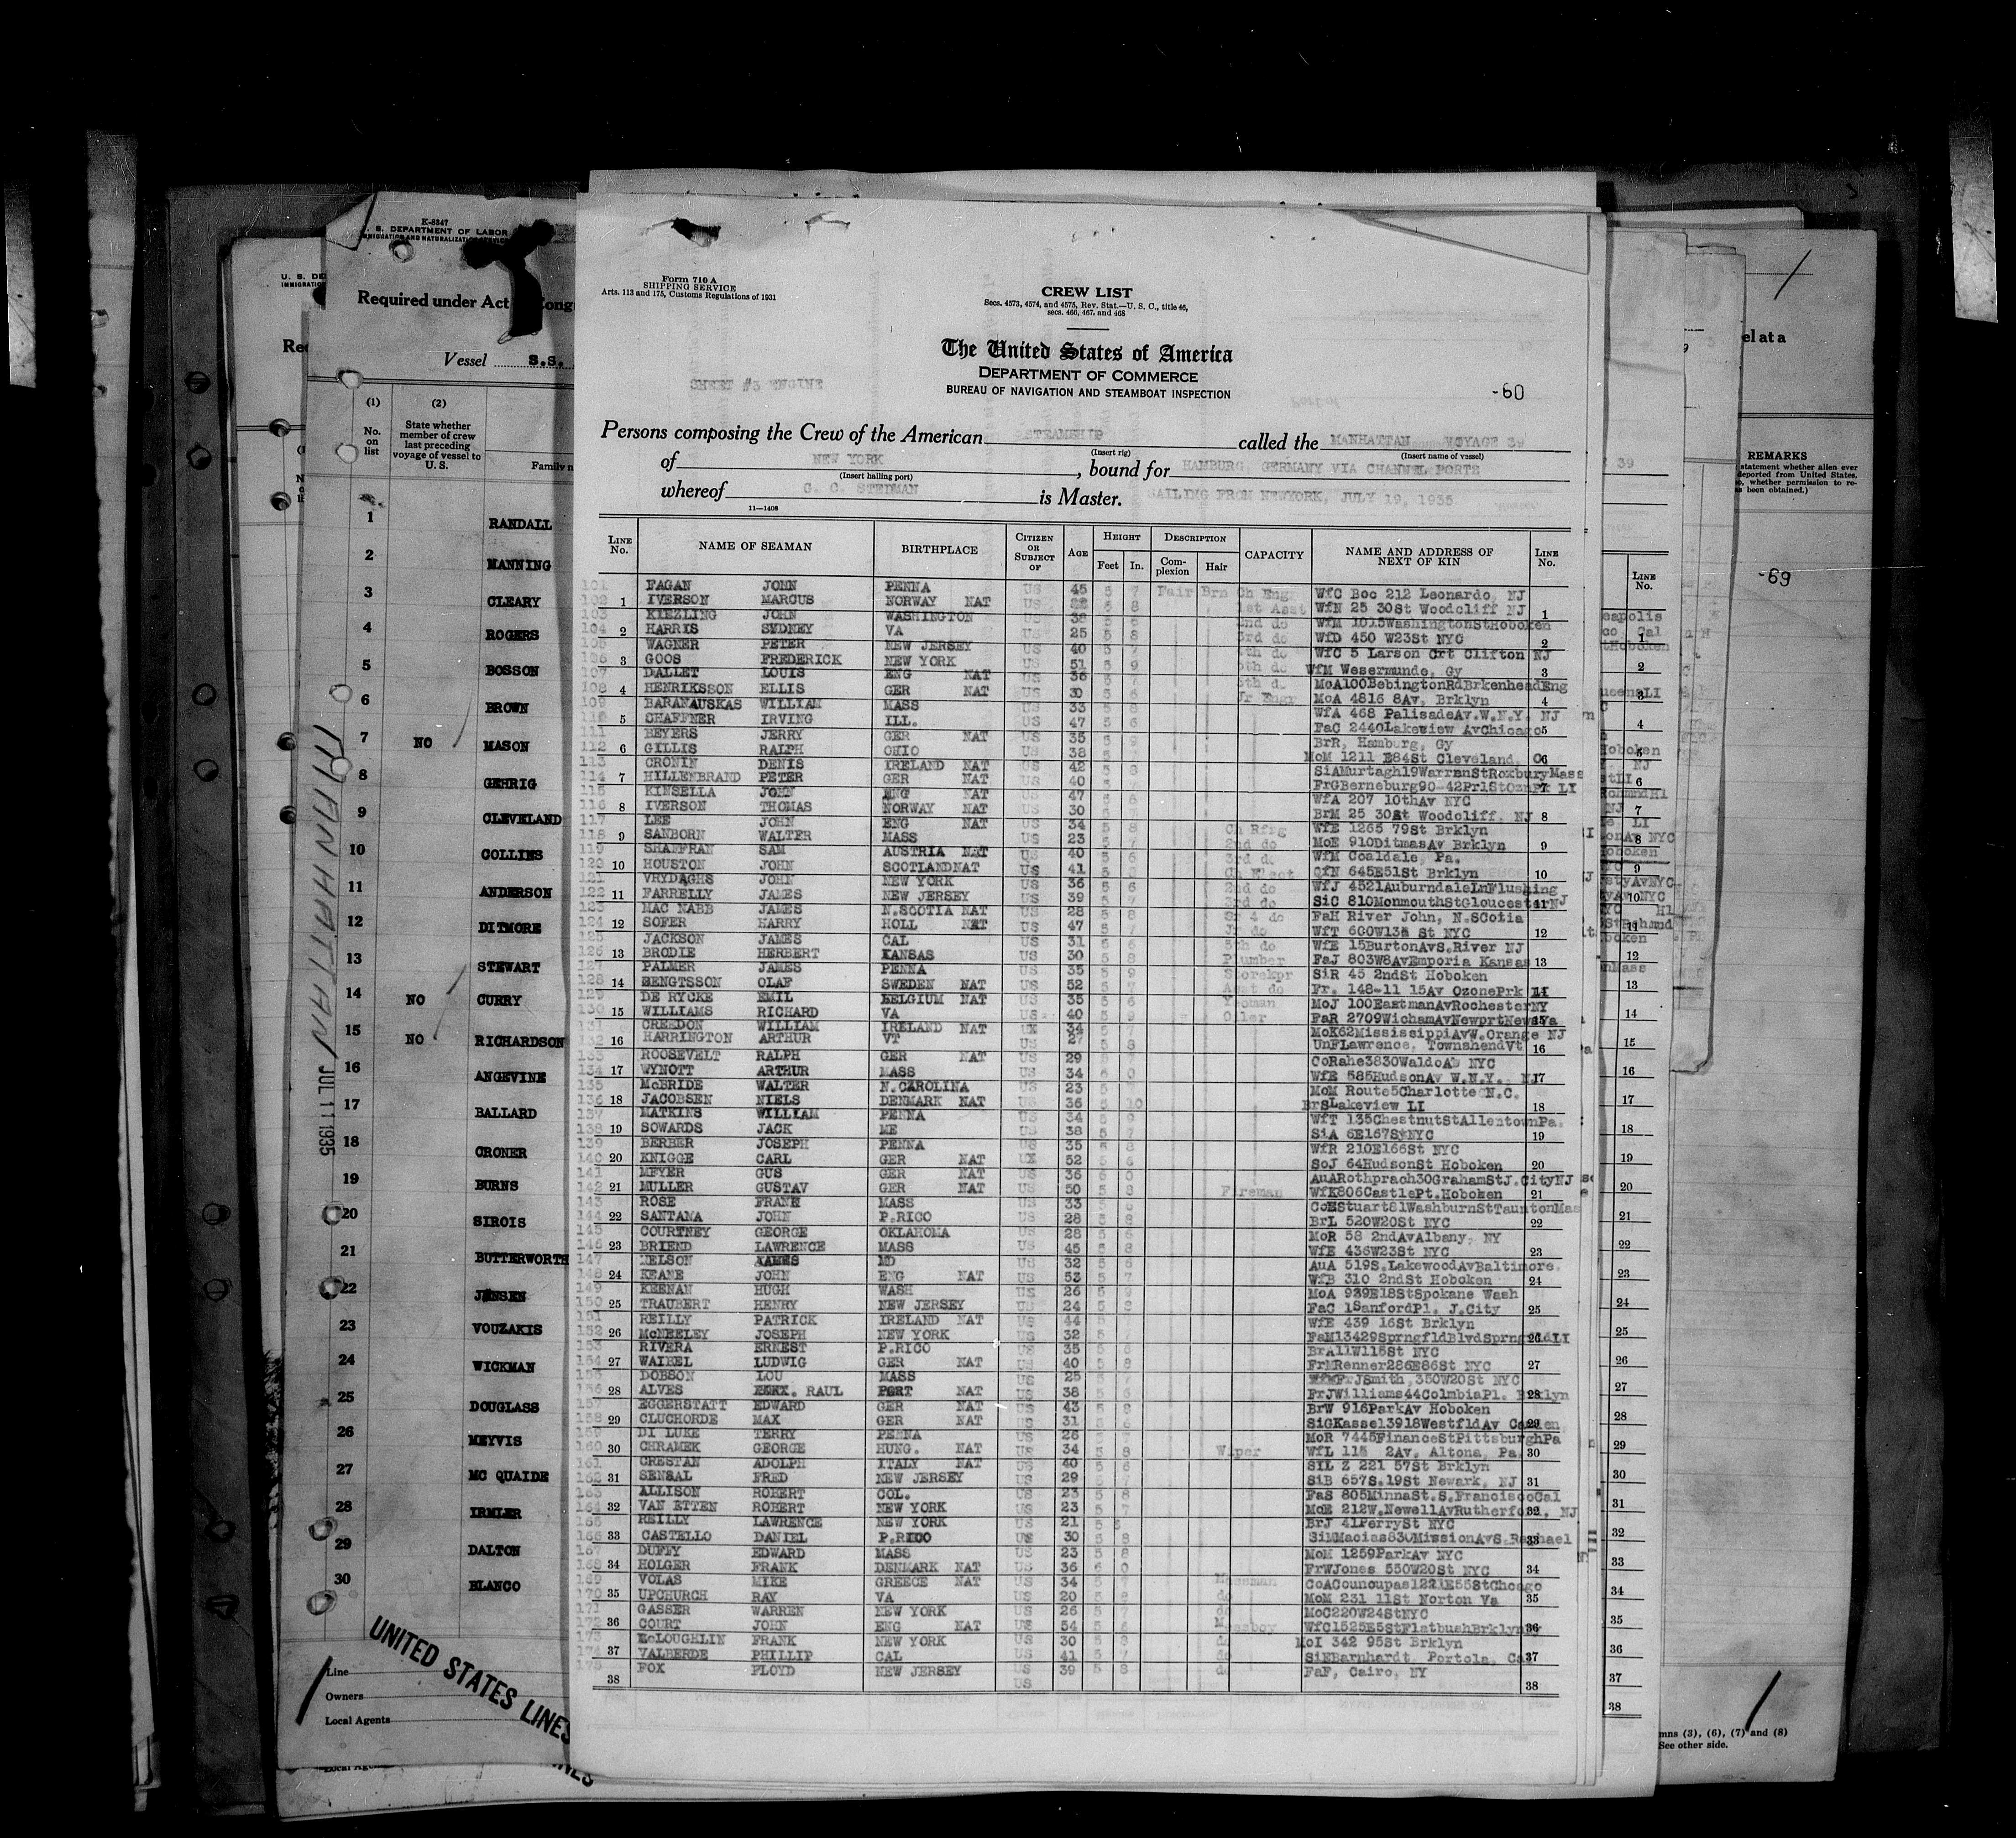 K-8347
S. DEPARTMENT OF LABOR
Required under Act
Vessel S.S.
(1) (2)
No. on list
State whether member of crew last preceding voyage of vessel to U.S.
Family n
1 RANDALL
2 MANNING
3 CLEARY
4 ROGERS
5 BOSSON
6 BROWN
7 NO MASON
8 GEHRIG
9 CLEVELAND
10 COLLINS
11 ANDERSON
12 DITMORE
13 STEWART
14 NO CURRY
15 NO RICHARDSON
16 ANGEVINE
17 BALLARD
18 CRONER
19 BURNS
20 SIROIS
21 BUTTERWORTH
22 JENSEN
23 VOUZAKIS
24 WICKMAN
25 DOUGLASS
26 MEYVIS
27 MC QUAIDE
28 IRMLER
29 DALTON
30 BLANCO
MANHATTAN JUL 11 1935
UNITED STATES LINES
Line
Owners
Local Agents
Form 710 A
SHIPPING SERVICE
Arts. 113 and 175, Customs Regulations of 1931
CREW LIST
Secs. 4573, 4574, and 4575, Rev. Stat.—U. S. C., title 46,
secs. 466, 467, and 468
The United States of America
DEPARTMENT OF COMMERCE
BUREAU OF NAVIGATION AND STEAMBOAT INSPECTION
SHEET #3 ENGINE
-60
Persons composing the Crew of the American STEAMSHIP called the MANHATTAN VOYAGE 39
(Insert rig) (Insert name of vessel)
of NEW YORK, bound for HAMBURG, GERMANY VIA CHANNEL PORTS
(Insert hailing port)
whereof G. C. STEDMAN is Master. SAILING FROM NEWYORK, JULY 19, 1935
11—1408
LINE No. NAME OF SEAMAN BIRTHPLACE CITIZEN OR SUBJECT OF AGE HEIGHT Feet In. DESCRIPTION Complexion Hair CAPACITY NAME AND ADDRESS OF NEXT OF KIN LINE No.
101 FAGAN JOHN PENNA US 45 5 7 Fair Brn Ch Engr WfC Box 212 Leonardo, NJ
102 1 IVERSON MARCUS NORWAY NAT US 5 8 1st Asst WfN 25 30St Woodcliff NJ 1
103 KIEZLING JOHN WASHINGTON US 38 5 8 2nd do WfM 1015WashingtonStHoboken
104 2 HARRIS SYDNEY VA US 25 5 8 3rd do WfD 450 W23St NYC 2
105 WAGNER PETER NEW JERSEY US 40 5 7 4th do WfC 5 Larson Crt Clifton NJ
106 3 GOOS FREDERICK NEW YORK US 51 5 9 5th do WfM Wesermunde, Gy 3
107 DALLET LOUIS ENG NAT US 36 5 7 5th d MoA100BebingtonRdBrkenheadEng
108 4 HENRIKSSON ELLIS GER NAT US 30 5 6 Jr Engr MoA 4816 8Av, Brklyn 4
109 BARANAUSKAS WILLIAM MASS US 33 5 8 WfA 468 PalisadeAv.W.N.Y. NJ
110 5 CHAFFNER IRVING ILL. US 47 5 6 FaC 2440Lakeview AvChicago 5
111 BEYERS JERRY GER NAT US 35 5 9 BrR, Hamburg, Gy
112 6 GILLIS RALPH OHIO US 38 5 MoM 1211 E84St Cleveland, O 6
113 CRONIN DENIS IRELAND NAT US 42 5 8 SiAMurtagh19WarrenStRoxburyMass
114 7 HILLENBRAND PETER GER NAT US 40 5 FrGBerneburg90-42Pr1StOznPk LI 7
115 KINSELLA JOHN ENG NAT US 47 5 6 WfA 207 10thAv NYC
116 8 IVERSON THOMAS NORWAY NAT US 30 5 BrM 25 30St Woodcliff, NJ 8
117 LEE JOHN ENG NAT US 34 5 8 Ch Rfrg WfE 1265 79St Brklyn
118 9 SANBORN WALTER MASS US 23 5 7 2nd do MoE 910DitmasAv Brklyn 9
119 SHAFFRAN SAM AUSTRIA NAT US 40 5 6 3rd do WfM Coaldale, Pa.
120 10 HOUSTON JOHN SCOTLANDNAT US 41 5 Ch Elect CfN 645E51St Brklyn 10
121 VRYDAGHS JOHN NEW YORK US 36 5 6 2nd do WfJ 4521AuburndaleLnFlushing
122 11 FARRELLY JAMES NEW JERSEY US 39 5 7 3rd do SiC 810MonmouthStGloucesterNJ 11
123 MAC NABB JAMES N.SCOTIA NAT US 28 5 8 Sr 4 do FaH River John, N.SCotia
124 12 SOFER HARRY HOLL NAT US 47 5 7 Jr do WfT 600W138 St NYC 12
125 JACKSON JAMES CAL US 31 5 6 5th do WfE 15BurtonAvS.River NJ
126 13 BRODIE HERBERT KANSAS US 30 5 8 Plumber FaJ 803W8AvEmporia Kansas 13
127 PALMER JAMES PENNA US 35 5 9 Storekpr SiR 45 2ndSt Hoboken
128 14 BENGTSSON OLAF SWEDEN NAT US 52 5 7 Asst do Fr. 148-11 15Av OzonePrk LI 14
129 DE RYCKE EMIL BELGIUM NAT US 35 5 6 Yeoman MoJ 100EastmanAvRochesterNY
130 15 WILLIAMS RICHARD VA US 40 5 9 Oiler FaR 2709WichamAvNewprtNewsVa 15
131 CREEDON WILLIAM IRELAND NAT UX 34 5 7 MoK62MississippiAvW.Orange NJ
132 16 HARRINGTON ARTHUR VT US 27 5 8 UnFLawrence, TownshendVt 16
133 ROOSEVELT RALPH GER NAT US 29 5 7 CoRahe3830WaldoAv NYC
134 17 WYNOTT ARTHUR MASS US 34 6 0 WfE 585HudsonAv W.N.Y. NJ 17
135 McBRIDE WALTER N.CAROLINA US 23 5 MoM Route5Charlotte N.C.
136 18 JACOBSEN NIELS DENMARK NAT US 36 5 10 BrSLakeview LI 18
137 MATKINS WILLIAM PENNA US 34 5 9 WfT 135ChestnutStAllentownPa.
138 19 SOWARDS JACK ME US 38 5 7 SiA 6E167StNYC 19
139 BERBER JOSEPH PENNA US 35 5 8 WfR 210E166St NYC
140 20 KNIGGE CARL GER NAT UX 52 5 6 SoJ 64HudsonSt Hoboken 20
141 MEYER GUS GER NAT US 36 6 0 AuARothprach30GrahamStJ.CityNJ
142 21 MULLER GUSTAV GER NAT US 50 5 8 Fireman WfK806CastlePt.Hoboken 21
143 ROSE FRANK MASS US 33 5 CoEStuart81WashburnStTauntonMas
144 22 SANTANA JOHN P.RICO US 28 5 8 BrL 520W20St NYC 22
145 COURTNEY GEORGE OKLAHOMA US 28 5 6 MoR 58 2ndAvAlbany, NY
146 23 BRIEND LAWRENCE MASS US 45 5 8 WfE 436W23St NYC 23
147 NELSON JAMES MD US 32 5 6 AuA 519S.LakewoodAvBaltimore.
148 24 KEANE JOHN ENG NAT US 53 5 7 WfB 310 2ndSt Hoboken 24
149 KEENAN HUGH WASH US 26 5 9 MoA 939E18StSpokane Wash
150 25 TRAUBERT HENRY NEW JERSEY US 24 5 8 FaC 1SanfordPl. J.City 25
151 REILLY PATRICK IRELAND NAT US 44 5 WfE 439 16St Brklyn
152 26 McNEELEY JOSEPH NEW YORK US 32 5 FaM13429SprngfldBlvdSprngfldLI 26
153 RIVERA ERNEST P.RICO US 35 5 6 BrA11W115St NYC
154 27 WAIBEL LUDWIG GER NAT US 40 5 8 FrMRenner286E86St NYC 27
155 DOBSON LOU MASS US 25 5 7 FrJSmith,350W20St NYC
156 28 ALVES RAUL PORT NAT US 38 5 6 FrJWilliams44ColmbiaPl. Brklyn 28
157 EGGERSTATT EDWARD GER NAT US 43 5 8 BrW 916ParkAv Hoboken
158 29 CLUCHORDE MAX GER NAT US 31 5 6 SiGKassel3918WestfldAv Camden 29
159 DI LUKE TERRY PENNA US 26 5 MoR 7445FinanceStPittsburghPa
160 30 CHRAMEK GEORGE HUNG. NAT US 34 5 8 Wiper WfL 115 2Av. Altona, Pa 30
161 CRESTAN ADOLPH ITALY NAT US 40 5 6 SIL Z 221 57St Brklyn
162 31 SENSAL FRED NEW JERSEY US 29 5 7 SiB 657S.19St Newark, NJ 31
163 ALLISON ROBERT COL. US 23 5 8 FaS 805MinnaSt.S.FranciscoCal
164 32 VAN ETTEN ROBERT NEW YORK US 23 5 7 MoE 212W.NewellAvRutherford, NJ 32
165 REILLY LAWRENCE NEW YORK US 21 5 8 BrJ 41PerrySt NYC
166 33 CASTELLO DANIEL P.RICO US 30 5 8 SiMMacias830MissionAvS.Raphael 33
167 DUFFY EDWARD MASS US 23 5 8 MoM 1259ParkAv NYC
168 34 HOLGER FRANK DENMARK NAT US 36 6 0 FrWJones 550W20St NYC 34
169 VOLAS MIKE GREECE NAT US 34 5 7 Messman CoACounoupas1221E55StChcago
170 35 UPCHURCH RAY VA US 20 5 8 do MoM 231 11St Norton Va 35
171 GASSER WARREN NEW YORK US 26 5 7 do MoC220W24StNYC
172 36 COURT JOHN ENG NAT US 54 5 6 Messboy WfC1525E5StFlatbushBrklyn 36
173 McLOUGHLIN FRANK NEW YORK US 30 5 8 do MoI 342 95St Brklyn
174 37 VALBERDE PHILLIP CAL US 41 5 7 do SiEBarnhardt, Portola, Cal 37
175 FOX FLOYD NEW JERSEY US 39 5 8 do FaF, Cairo, NY
38 US 38
REMARKS
-69
See other side.